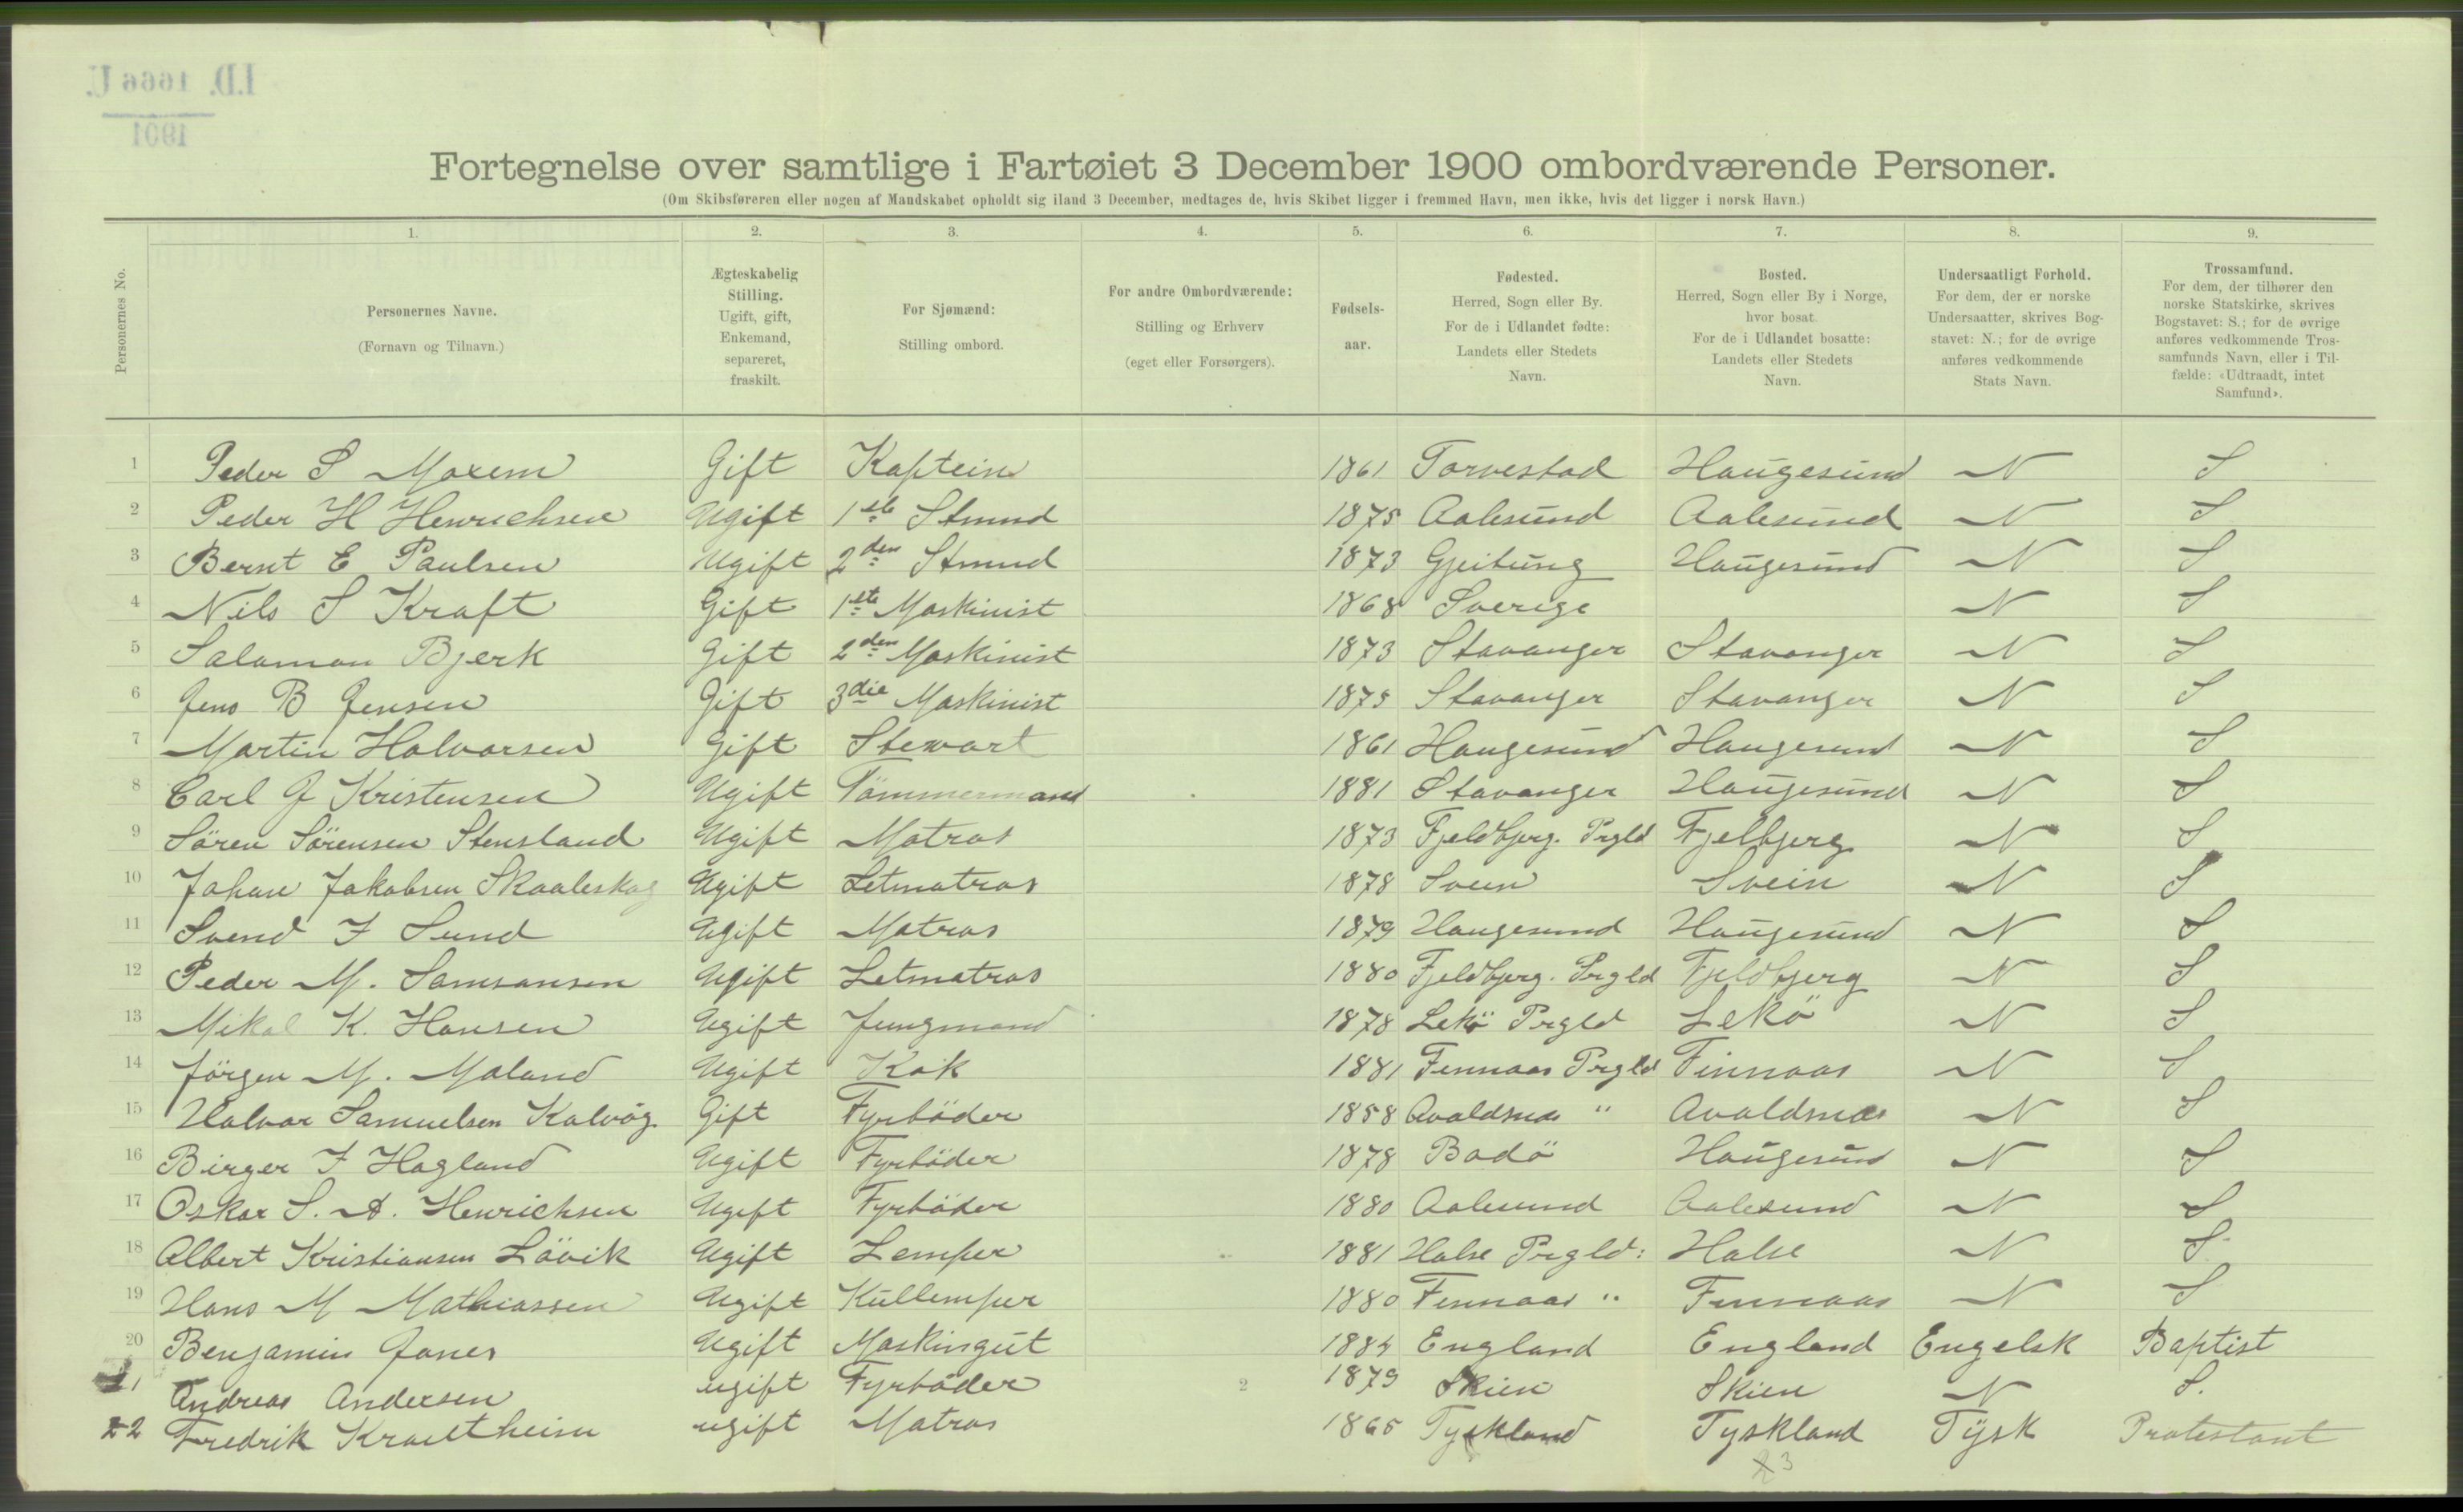 I.D. 1666 U.
1901
Fortegnelse over samtlige i Fartøiet 3 December 1900 ombordværende Personer.
(Om Skibsføreren eller nogen af Mandskabet opholdt sig iland 3 December, medtages de, hvis Skibet ligger i fremmed Havn, men ikke, hvis det ligger i norsk Havn.)
1. 2. 3. 4. 5. 6. 7. 8. 9.
Personernes No.
Personernes Navne.
(Fornavn og Tilnavn.)
Ægteskabelig
Stilling.
Ugift, gift,
Enkemand,
separeret,
fraskilt.
For Sjømænd:
Stilling ombord.
For andre Ombordværende:
Stilling og Erhverv
(eget eller Forsørgers).
Fødsels-
aar.
Fødested.
Herred, Sogn eller By.
For de i Udlandet fødte:
Landets eller Stedets
Navn.
Bosted.
Herred, Sogn eller By i Norge,
hvor bosat.
For de i Udlandet bosatte:
Landets eller Stedets
Navn.
Undersaatligt Forhold.
For dem, der er norske
Undersaatter, skrives Bog-
stavet: N.; for de øvrige
anføres vedkommende
Stats Navn.
Trossamfund.
For dem, der tilhører den
norske Statskirke, skrives
Bogstavet: S.; for de øvrige
anføres vedkommende Tros-
samfunds Navn, eller i Til-
fælde: «Udtraadt, intet
Samfund».
1 Peder S Moxem Gift Kaptein 1861 Torvestad Haugesund N S
2 Peder H Henrichsen Ugift 1ste Strmnd 1875 Aalesund Aalesund N S
3 Bernt E Paulsen Ugift 2den Strmnd 1873 Gjeitung Haugesund N S
4 Nils S Kraft Gift 1ste Maskinist 1868 Sverige N S
5 Salamon Bjerk Gift 2den Maskinist 1873 Stavanger Stavanger N S
6 Jens B Jensen Gift 3die Maskinist 1875 Stavanger Stavanger N S
7 Martin Halvorsen Gift Stewart 1861 Haugesund Haugesund N S
8 Carl J Kristensen Ugift Tömmermand 1881 Stavanger Haugesund N S
9 Sören Sörensen Stensland Ugift Matros 1873 Fjeldbjerg. Prgld Fjelbjerg N S
10 Johan Jakobsen Skaaleskog Ugift Letmatros 1878 Sveen Svein N S
11 Svend I Sund Ugift Matros 1879 Haugesund Haugesund N S
12 Peder M. Samsonsen Ugift Letmatros 1880 Fjeldbjerg. Prgld Fjeldbjerg N S
13 Mikal K. Hansen Ugift Jungmand 1878 Lekö Prgld Lekö N S
14 Jörgen M. Maland Ugift Kok 1881 Finnaas Prgld Finnaas N S
15 Halvor Samuelsen Kalvög Gift Fyrböder 1858 Avaldsnæs " Avaldsnæs N S
16 Birger I Hagland Ugift Fyrböder 1878 Bodö Haugesund N S
17 Oskar S. A. Henrichsen Ugift Fyrböder 1880 Aalesund Aalesund N S
18 Albert Kristiansen Lövik Ugift Lemper 1881 Halse Prgld: Halse N S
19 Hans M Mathiassen Ugift Kullemper 1880 Finnaas " Finnaas N S
20 Benjamin Jones Ugift Maskingut 1884 England England Engelsk Baptist
21 Andreas Andersen ugift Fyrböder 2 1879 Skien Skien N S.
22 Fredrik ugift Matros 1865 Tyskland Tyskland Tysk Protestant
23